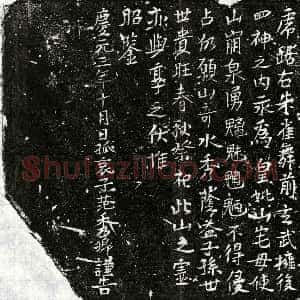 虎踞右朱雀舞前玄武擁後
四神之内永為皇妣山宅毋使
山崩泉湧魑魅魍魎不得侵
占仍願山奇水秀蔭溢子孫世
世貴旺春秋祭祀此山之靈
亦與享之伏惟
昭鑒
慶元三年十月日孤哀子范秀卿謹告
Shufaziliao.com